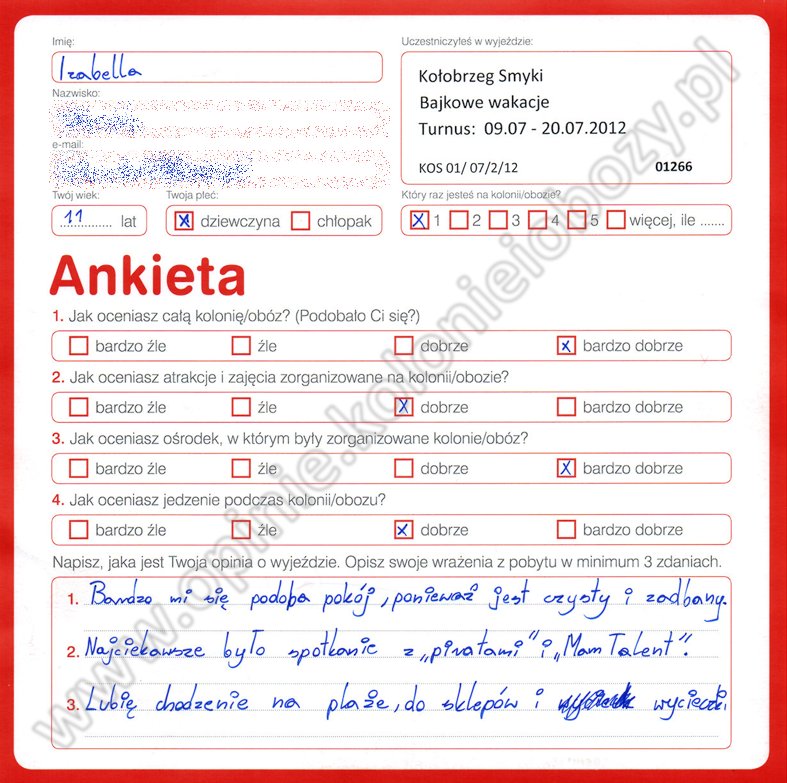 Imię:
Uczestniczyłeś w wyjeździe:
Izabella
Kołobrzeg Smyki
Nazwisko:
Bajkowe wakacje
Turnus: 09.07 - 20.07.2012
e-mail:
KOS 01/ 07/2/12 01266
Twój wiek: Twoja płeć: Który raz jesteś na kolonii/obozie?
11 lat X dziewczyna chłopak X 1 2 3 4 5 więcej, ile .......
Ankieta
1. Jak oceniasz całą kolonię/obóz? (Podobało Ci się?)
bardzo źle źle dobrze X bardzo dobrze
2. Jak oceniasz atrakcje i zajęcia zorganizowane na kolonii/obozie?
bardzo źle źle X dobrze bardzo dobrze
3. Jak oceniasz ośrodek, w którym były zorganizowane kolonie/obóz?
bardzo źle źle dobrze X bardzo dobrze
4. Jak oceniasz jedzenie podczas kolonii/obozu?
bardzo źle źle X dobrze bardzo dobrze
Napisz, jaka jest Twoja opinia o wyjeździe. Opisz swoje wrażenia z pobytu w minimum 3 zdaniach.
1. Bardzo mi się podoba pokój, ponieważ jest czysty i zadbany.
2. Najciekawsze było spotkanie z „piratami" i „Mam Talent".
3. Lubię chodzenie na plaże, do sklepów i wycieczki
www.opinie.kolonieiobozy.pl